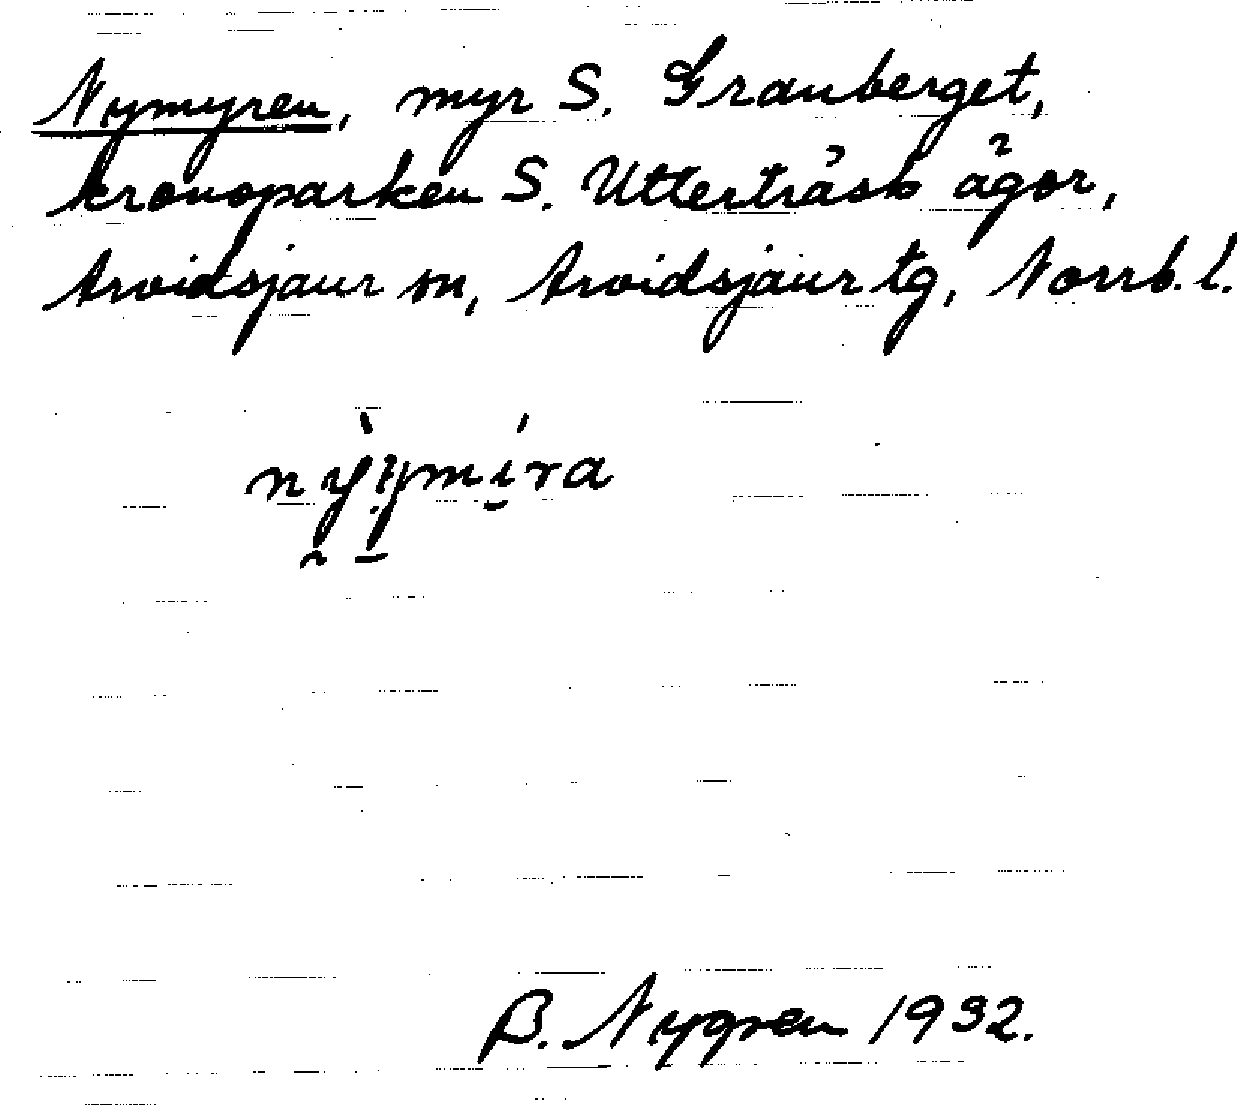 Nymyren, myr S. Granberget,
kronoparken S. Utterträsk ägor,
Arvidsjaur sn, Arvidsjaur tg, Norrb. l.
nỳymíra
B. Nygren 1932.